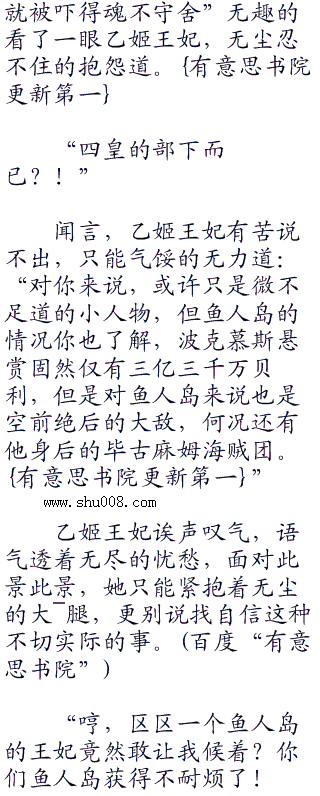 就被吓得魂不守舍”无趣的
看了一眼乙姬王妃，无尘忍
不住的抱怨道。{有意思书院
更新第一}
“四皇的部下而
已？！”
闻言，乙姬王妃有苦说
不出，只能气馁的无力道：
“对你来说，或许只是微不
足道的小人物，但鱼人岛的
情况你也了解，波克慕斯悬
赏固然仅有三亿三千万贝
利，但是对鱼人岛来说也是
空前绝后的大敌，何况还有
他身后的毕古麻姆海贼团。
{有意思书院更新第一}”
www.shu008.com
乙姬王妃诶声叹气，语
气透着无尽的忧愁，面对此
景此景，她只能紧抱着无尘
的大¯腿，更别说找自信这种
不切实际的事。(百度“有意
思书院”)
“哼，区区一个鱼人岛
的王妃竟然敢让我候着？你
们鱼人岛获得不耐烦了！